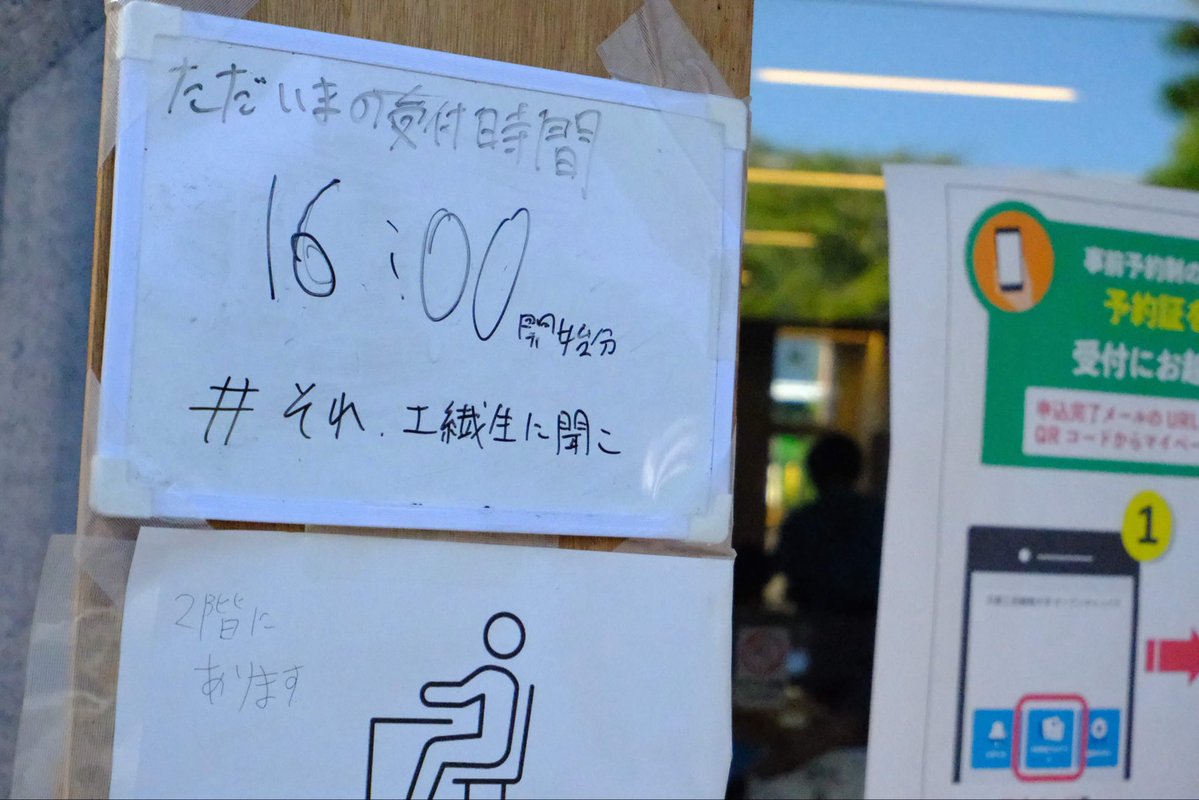 ただいまの受付時間
16:00
開始分
# それ、工繊生に聞こ
2階に
あります
事前予約制の
予約証を
受付にお越
申込完了メールのURL
QRコードからマイペー
1